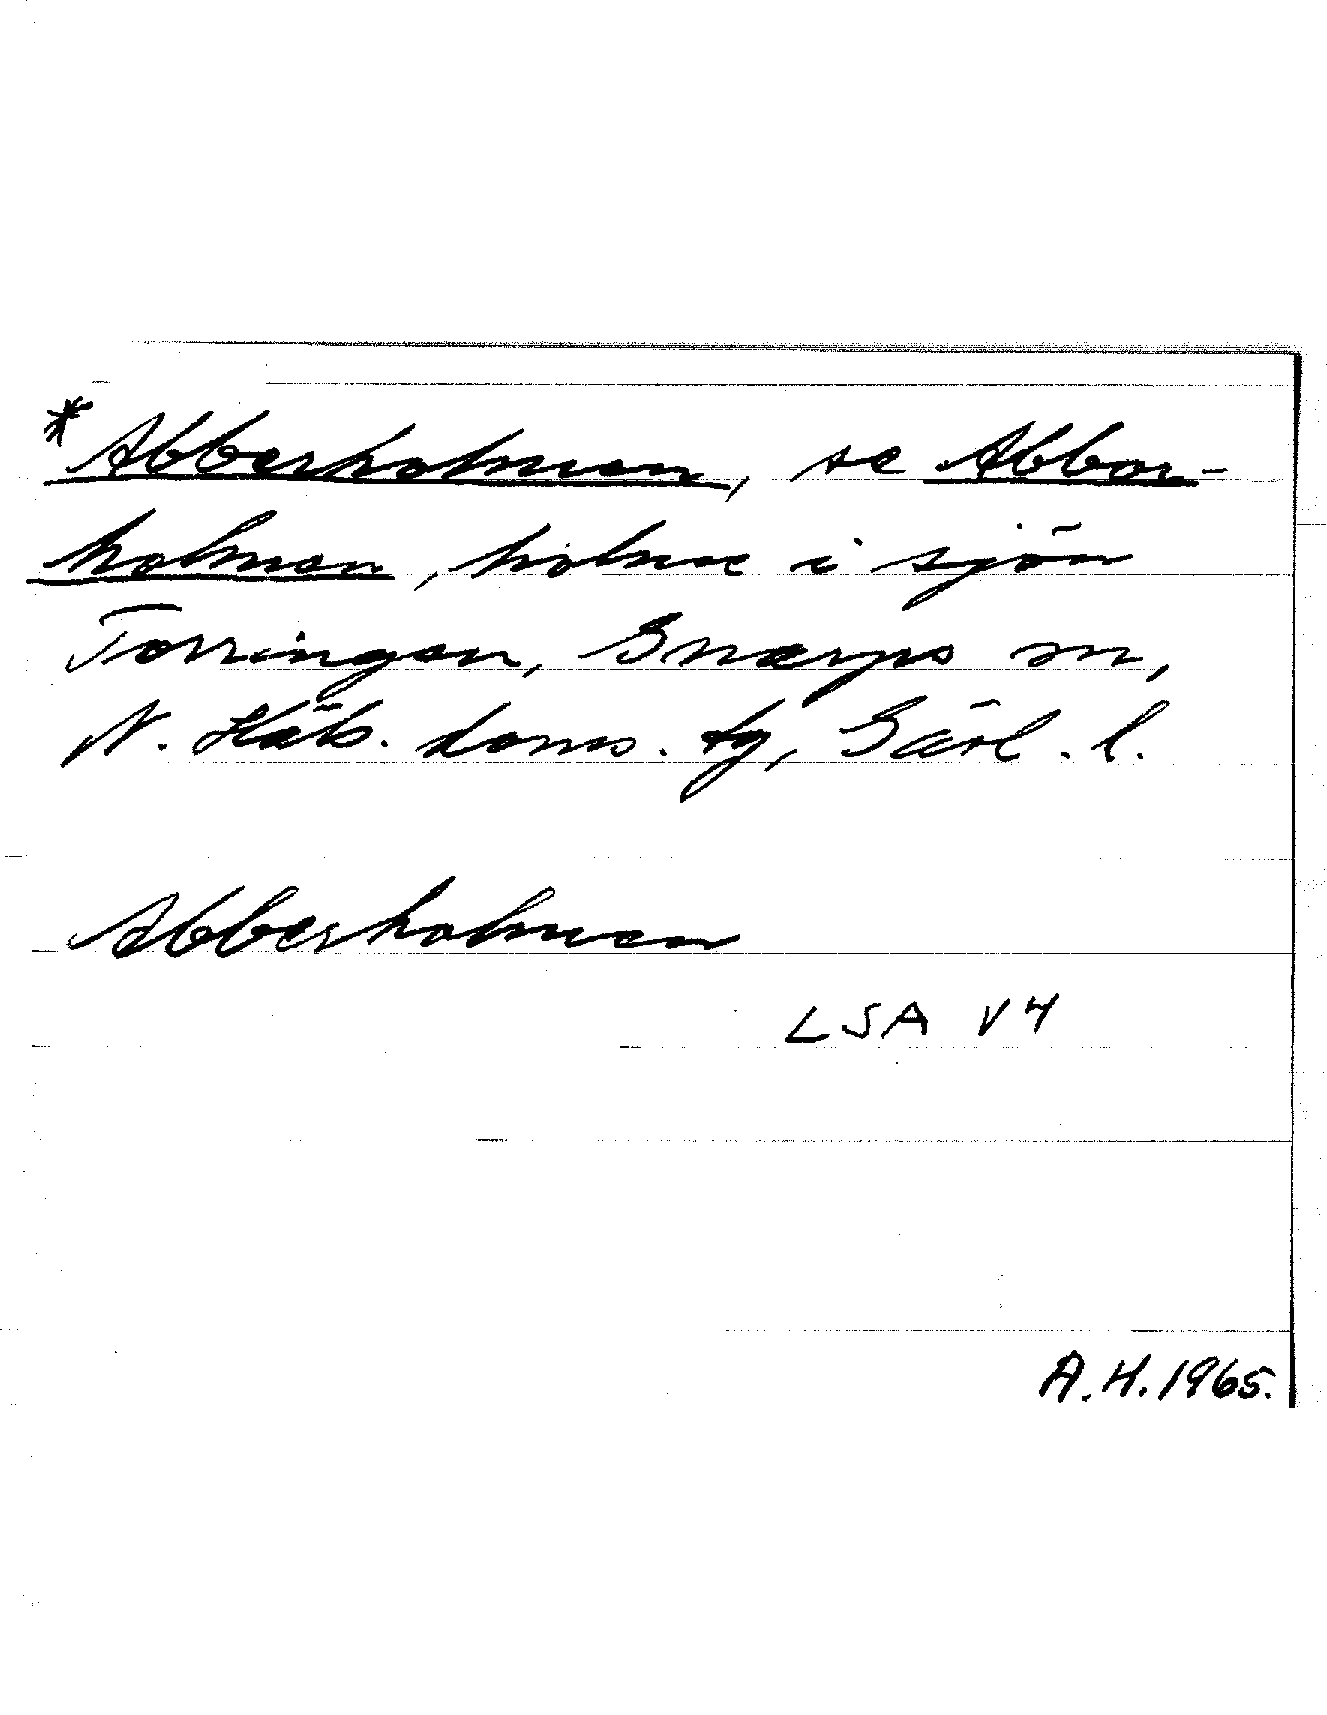 * Abberholmen, se Abbor-
holmen, holme i sjön
Torringen, Gnarps sn,
N. Häls. doms. tg, Gävl. l.
Abberholmen
LSA V4
A.H. 1965.